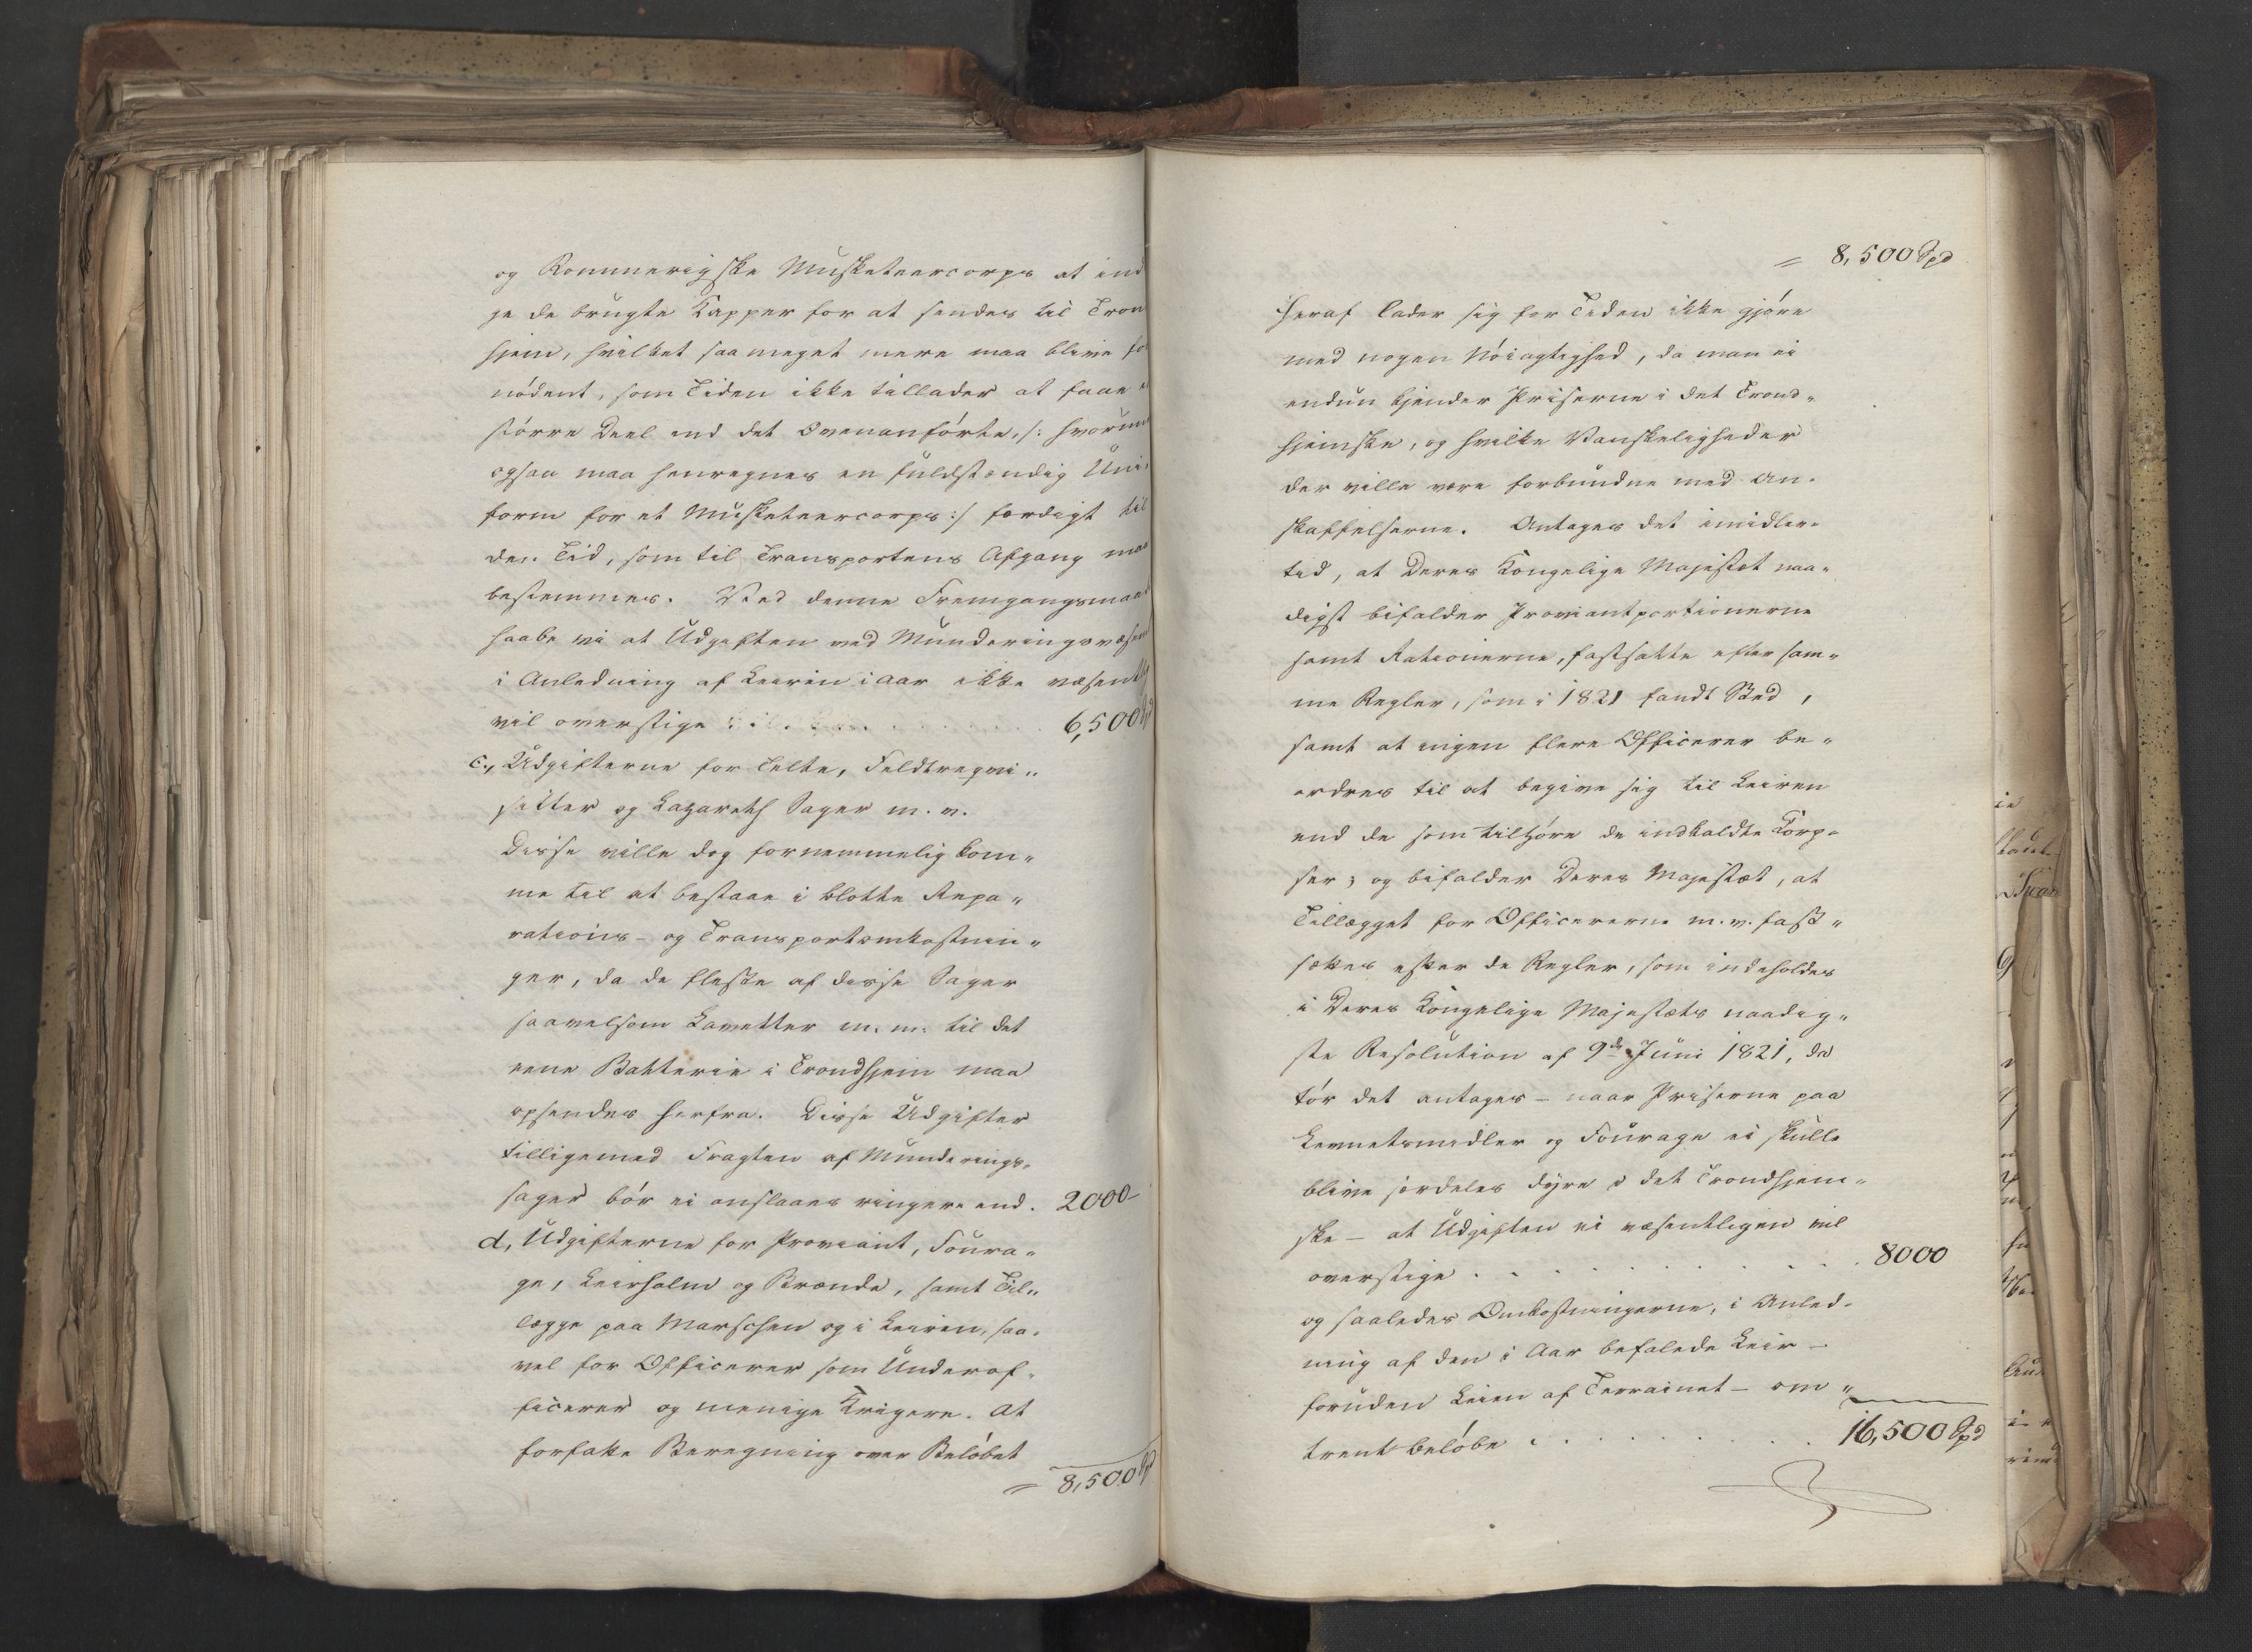 og Rommerigske Musketeercorps at ind
ge de brugte Kapper for at sendes til Tron
hjem, hvilket saa meget mere maa blive fo
nödent, som Tiden ikke tillader at faae
större Deel end det Ovenanförte, /: hvorun
ogsaa maa henregnes en fuldstændig Uni
form for et Musketeercorps :/ færdigt til
den Tid, som til Transportens Afgang maa
bestemmes. Ved denne Fremgangsmaad
haabe vi at Udgiften ved Munderingsvæsen
i Anledning af Leiren i Aar ikke væsentlig
vil overstige . . . . . . . . 6,500 Spd
c., Udgifterne for Telte, Feldtreqvi„
sitter og Lazareth Sager m. v.
Disse ville dog fornemmelig kom„
me til at bestaae i blotte Repa„
rations- og Transportomkostnin„
ger, da de fleste af disse Sager
saavelsom Lavetter m. m. til det
ene Batterie i Trondhjem maa
opsendes herfra. Disse Udgifter
tilligemed Fragten af Munderings„
sager bör ei anslaaes ringere end . 2000-
d, Udgifterne for Proviant, Foura„
ge, Leirhalm og Brænde, samt Til„
lægge paa Marschen og i Leiren, saa„
vel for Officerer som Underof„
ficerer og menige Krigere. At
forfatte Beregning over Belöbet
= 8,500 Spd
= 8,500 Spd
heraf lader sig for Tiden ikke gjöre
med nogen Nöiagtighed, da man ei
endnu kjender Priserne i det Trond„
hjemske, og hvilke Vanskeligheder
der ville være forbundne med An„
skaffelserne. Antages det imidler„
tid, at Deres Kongelige Majestæt naa„
digst bifalder Proviantportionerne
samt Rationerne, fastsatte efter sam„
me Regler, som i 1821 fandt Sted,
samt at ingen flere Officerer be„
ordres til at begive sig til Leiren
end de som tilhöre de indkaldte Corp„
ser; og bifalder Deres Majestæt, at
Tillægget for Officererne m. v. fast„
sættes efter de Regler, som indeholdes
i Deres Kongelige Majestæts naadig„
ste Resolution af 9de Juni 1821, da
tör det antages – naar Priserne paa
Levnetsmidler og Fourage ei skulle
blive særdeles dyre i det Trondhjem„
ske – at Udgiften ei væsentligen vil
overstige . . . . . . . . . . 8000
og saaledes Omkostningerne, i Anled„
ning af den i Aar befalede Leir –
foruden Leien af Terrainet – om„
trent belöbe . . . . . . . . 16,500 Spd